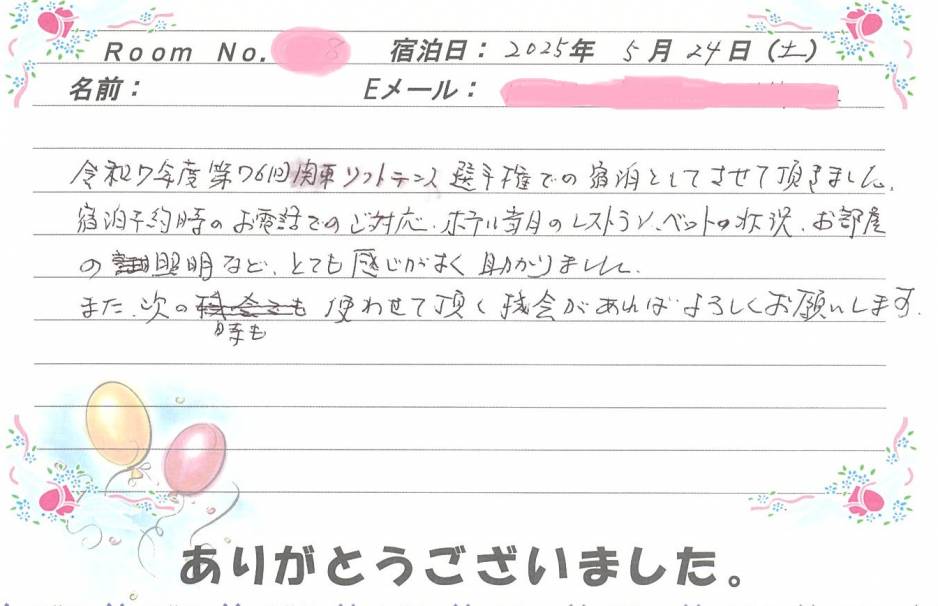 Room No. 宿泊日： 2025年 5月 24日（土）
名前： Eメール：
令和7年度第76回関東ソフトテニス選手権での宿泊としてさせて頂きました。
宿泊予約時のお電話でのご対応、ホテル当日のレストラン、ベットの状況、お部屋
の照明など、とても感じがよく助かりました。
また、次の時も使わせて頂く機会があればよろしくお願いします。
ありがとうございました。